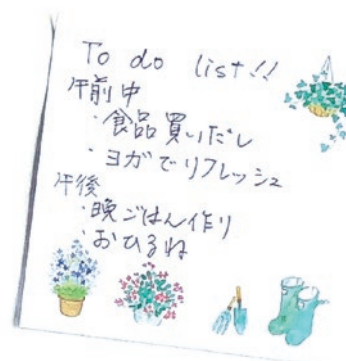 To do list!!
午前中
・食品買いだし
・ヨガでリフレッシュ
午後
・晩ごはん作り
・おひるね